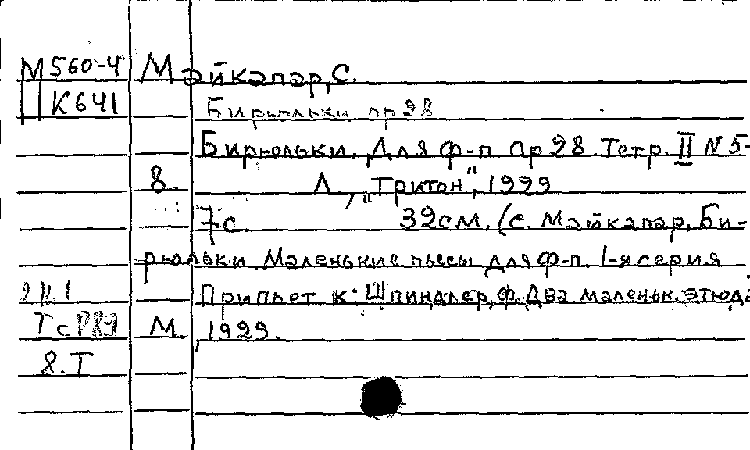 М560-4 Майкапар, С.
К641 Бирюльки ор28
Бирюльки. Для ф-п ор28. Тетр. II N 5-
8. Л., "Тритон", 1929
7с. 32см. (С. Майкапар, Би-
рюльки. Маленькие пьесы для ф-п. 1-я серия
Приплет к: Шпиндлер, Ф. Два маленьк. этюда
М. 1929.
8. Т